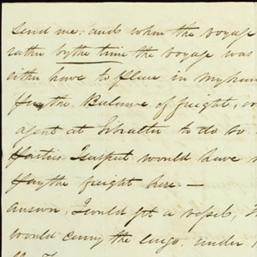 send me. and when the voyage
rather by the time the voyage was
either have to place in my han
for the Balance of freight, or
agent at Gibralter to do so
Parties I suspect would have
for the freight here —
answer, I could get a vessel,
would carry the cargo, under